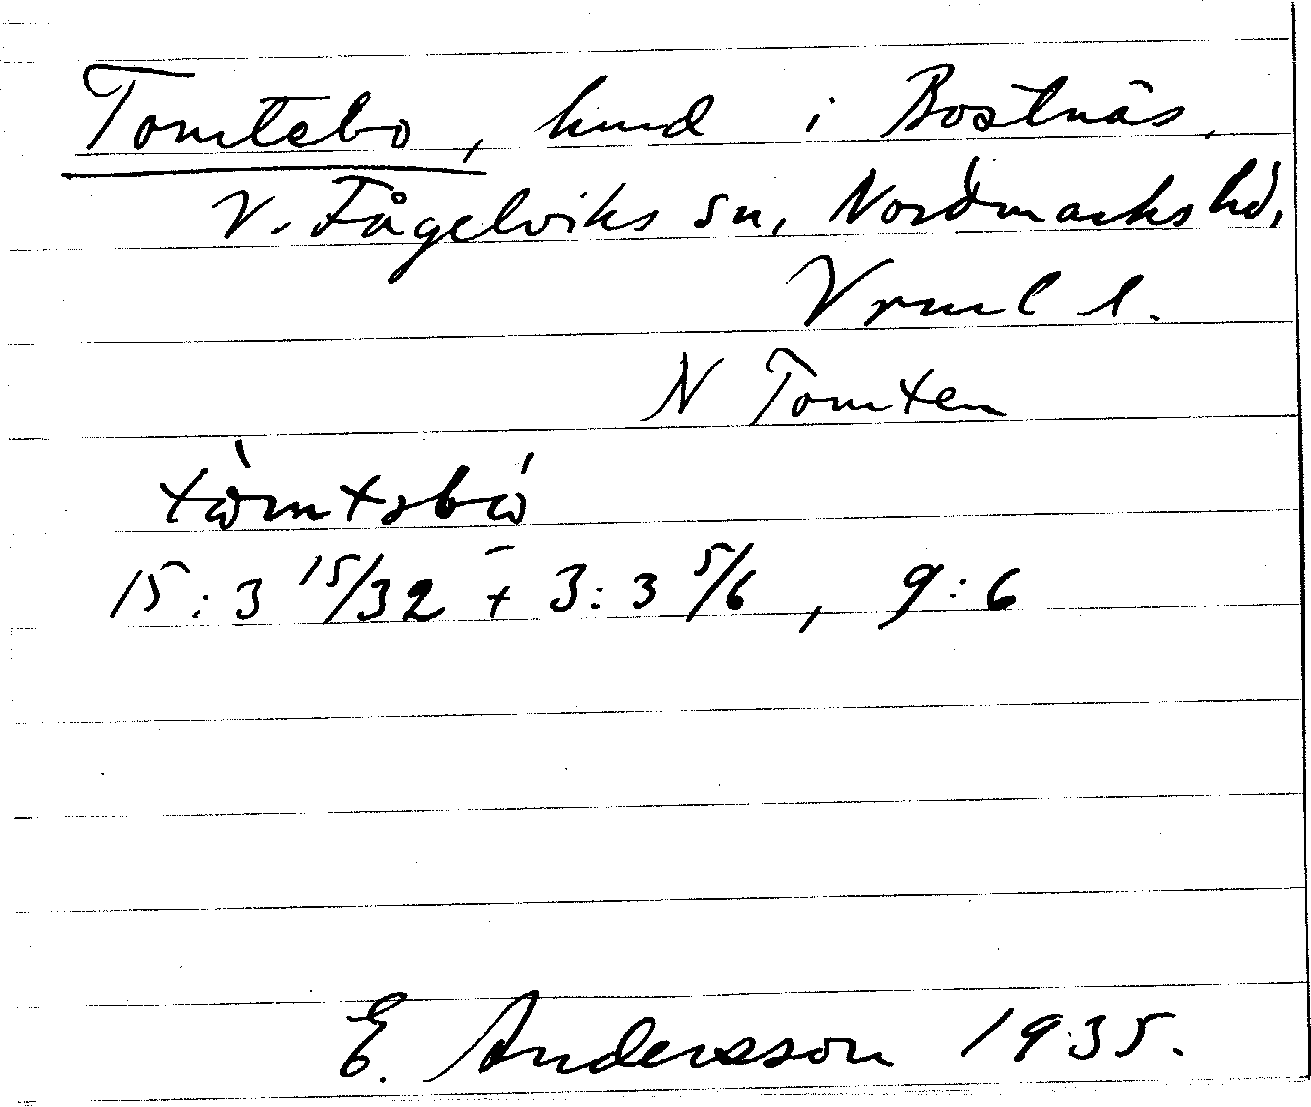 Tomtebo, hmd i Bostnäs,
V. Fågelviks sn, Nordmarks hd,
Vrml l.
N Tomten
tòmtəbó
15:3 15/32 + 3:3 5/6, 9:6
E. Andersson 1935.